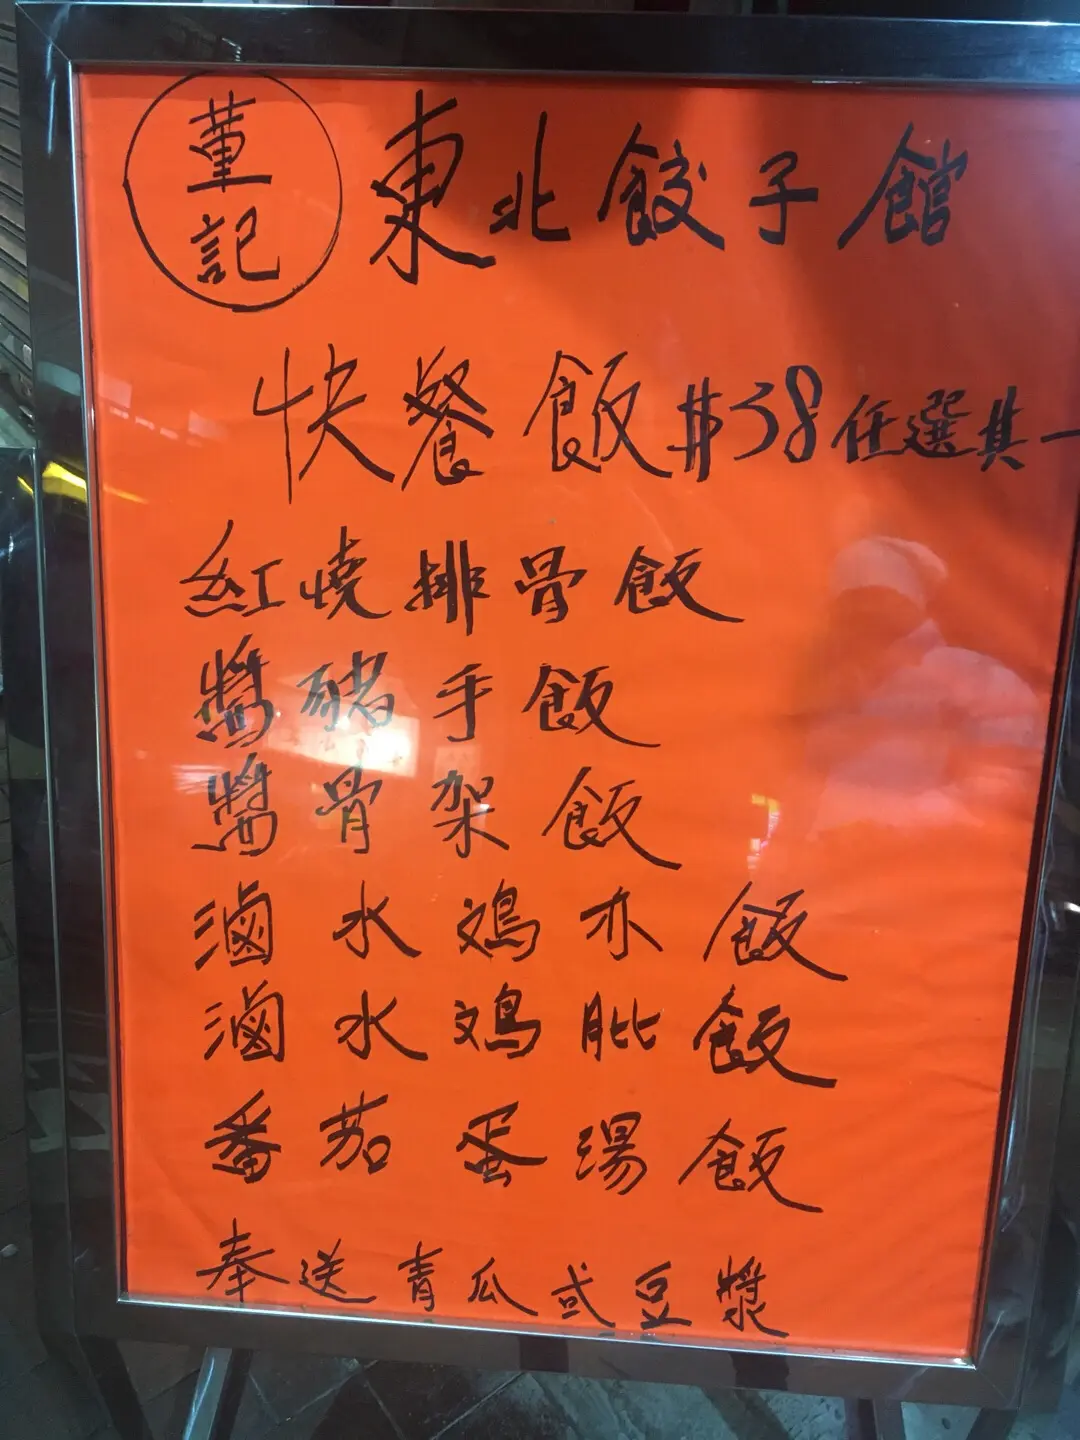 董記
東北餃子館
快餐飯 $38任選其一
紅燒排骨飯
醬豬手飯
醬骨架飯
滷水鸡亦飯
滷水鸡肶飯
番茄蛋湯飯
奉送青瓜或豆漿